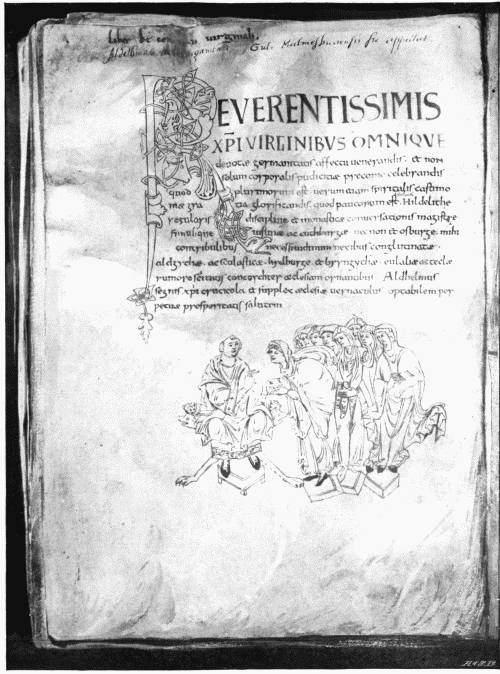 REVERENTISSIMIS
XPI VIRGINIBVS OMNIQVE
deuotae germanitatis affectu uenerandis. et non
solum corporalis pudicitiae preconio celebrandis
quod plurimorum est. uerum etiam spiritalis castimo
niae gratia glorificandis. quod paucorum est. Hildelithe
regularis discipline et monastice conuersationis magistre
simulque iustine ac cuthburge nec non et osburge. mihi
contribulibus necessitudinum nexibus conglutinatae.
aldgythae. ac scolasticae. hydburge. et byrngythae. eulaliae ac teclae
rumore scitatis concorditer ecclesiam ornantibus Aldhelmus
segnis xpi crucicola et supplex ecclesiae uernaculus optabilem per
petuae prosperitatis salutem